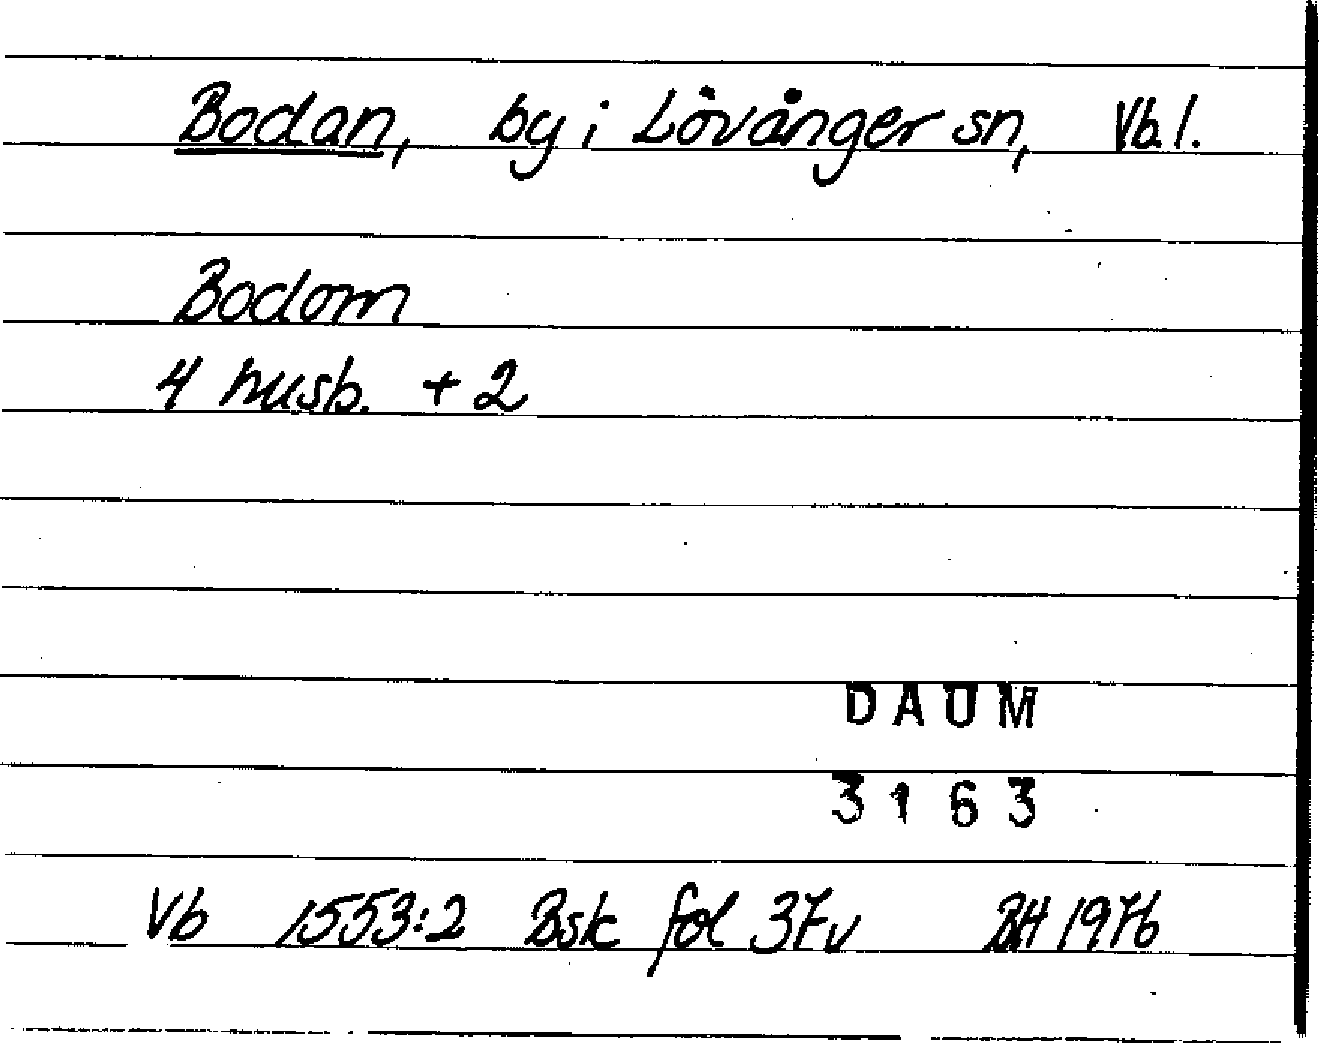 Bodan, by i Lövånger sn, Vb. l.
Bodom
4 husb. + 2
DAUM
3163
Vb 1553:2 Bsk fol 37v BH 1976